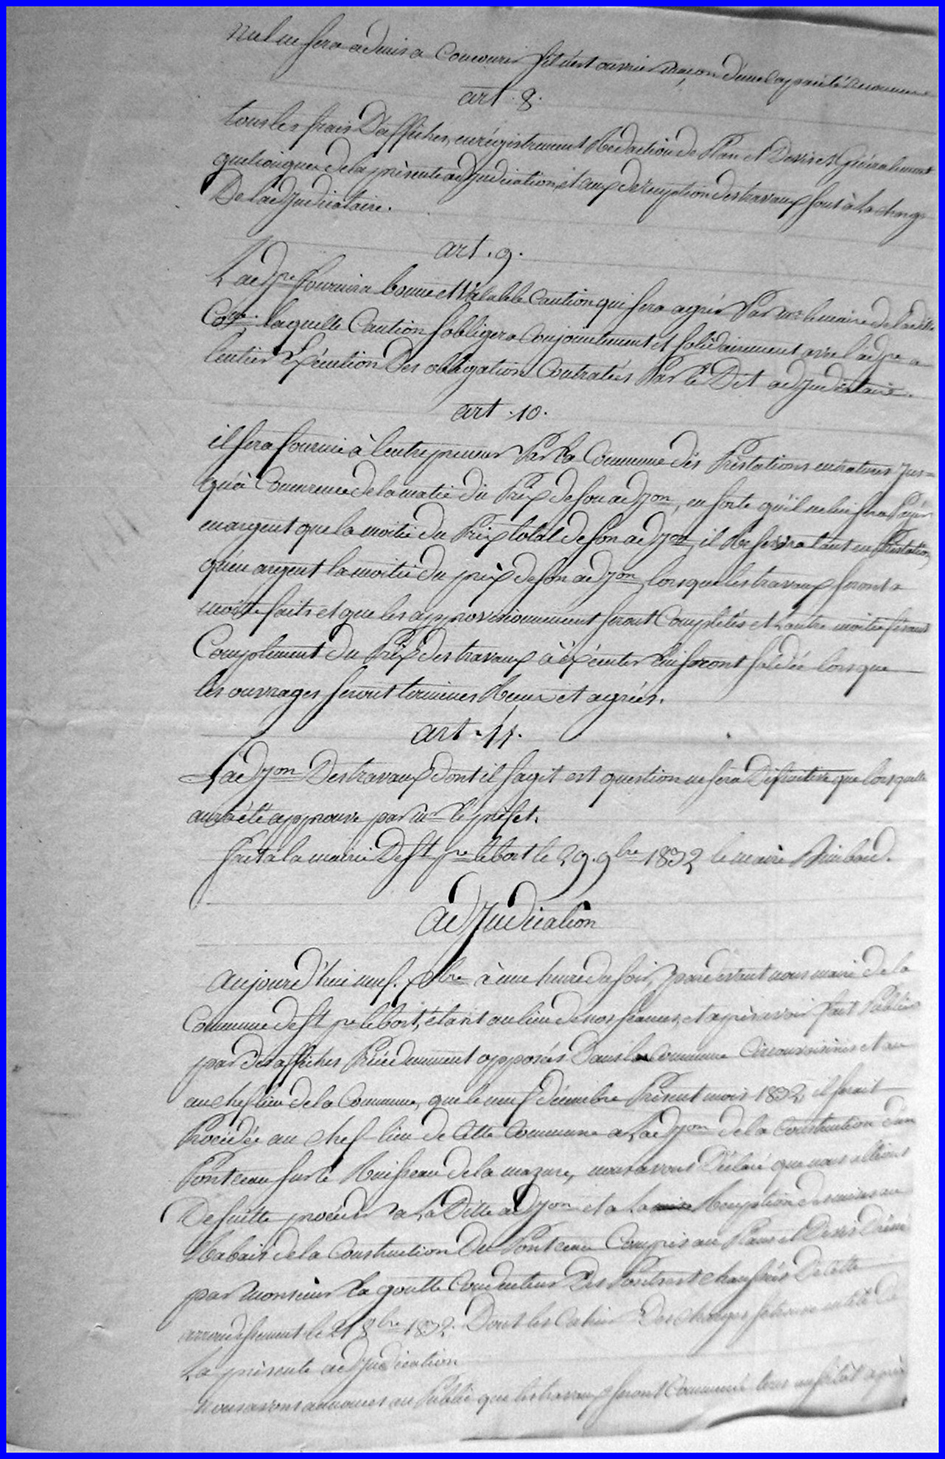 nul ne sera admis a concourir s'il n'est ouvrier maçon d'une capacité reconnue
art. 8.
tous les frais D'affiches, enrégistrement Rédaction de Plan et Devis et généralement
quelconques de la présente adjudication et aux de réception des travaux sont à la charge
De l'adjudicataire.
art. 9.
L'adjre fournira bonne et valable Caution qui sera agréé Par mr le maire de la dite
Cne. laquelle Caution s'obligera conjointement et solidairement avec l'adjre a
l'entier Exécution Des obligation Contratés Par le Dit adjudicataire.
art. 10.
il sera fournie à l'entrepreneur Par la Commune des Préstations en natures Jus=
qu'à Concurence de la moitié du Prix de son adjon, en sorte qu'il ne lui sera Payé
en argent que la moitié du Prix total de son adjon, il Recevra tant en Préstation,
qu'en argent la moitié du prix de son adjon, lorsque les travaux seront a
moitié faits et que les approvisionnement seront Complétés et l'autre moitié
Complement du Prix des travaux à éxécuter lui seront soldée lorsque
les ouvrages seront terminés Reçus et agréés.
art. 11.
L'adjon Des travaux dont il s'agit est question ne sera Définitive que lorsquelle
aura été approuvé par mr le préfet.
fait à la mairie De St pre lebost le 29. 9bre 1832 le maire Rimbaud.
adjudication
aujourd'hui neuf. Xbre à une heure du soir, pardevant nous maire de la
Commune de St pre lebost, étant au lieu de nos séances, et après avoir fait Publier
par Des affiches Précédemment apposés Dans les Commune Circonvoisines et au
au chef lieu de la Commune, que le neuf décembre Présent mois 1832 il serait
Procédée au chef-lieu de cette Commune a L'adjon de la Construction d'un
Ponteau sur le Ruisseau de la mazure, nous avons Déclaré que nous allions
De suitte procéder a La Ditte adjon et a la Réception des mises au
Rabais de la Construction Du Ponteau Compris au Plans et Devis
par Monsieur La goutte Conducteur Des Ponts et chaussées De cette
arrondissement le 21 8bre 1832. Dont les Cahier Des charges
La présente adjudication
Nous avons annoncés au Public que les travaux seront Commencé tous aussitôt après